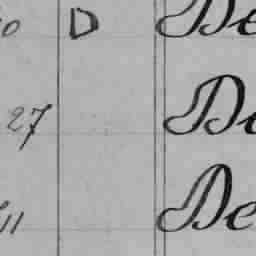 D De
27 De
11 De